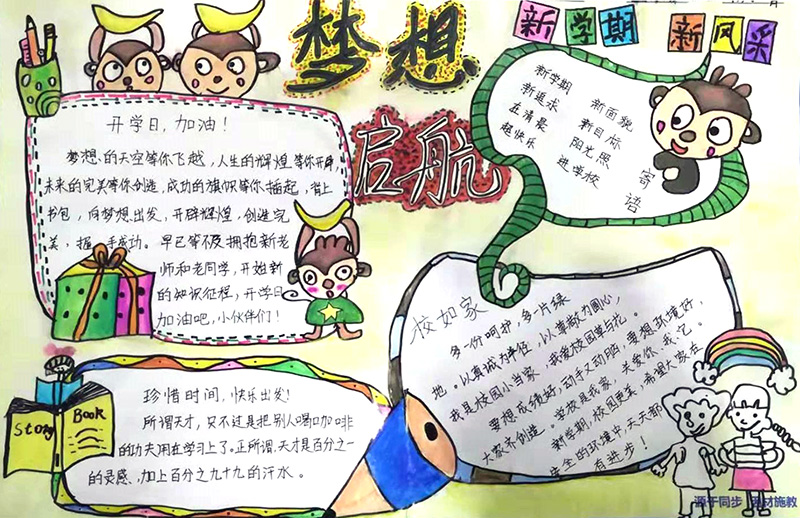 梦想
启航
新学期 新风采
开学日,加油!
梦想的天空等你飞越,人生的辉煌等你开辟,
未来的完美等你创造,成功的旗帜等你插起,背上
书包,向梦想出发,开辟辉煌,创造完
美,握手成功。早已等不及拥抱新老
师和老同学,开始新
的知识征程,开学日
加油吧,小伙伴们!
新学期 新面貌
新追求 新目标
在清晨 阳光照
趁快乐 进学校
寄语
校如家
多一份呵护,多一片绿
地。以真诚为半径,以尊敬为圆心,
我是校园小当家,我爱校园草与花。
要想成绩好,动手又动脑,要想环境好,
大家齐创造。学校是我家,关爱你我它。
新学期,校园更美,希望大家在
生的环境中,天天都
有进步!
珍惜时间,快乐出发!
所谓天才,只不过是把别人喝咖啡
的功夫用在学习上了。正所谓,天才是百分之一
的灵感,加上百分之九十九的汗水。
Story Book
源于同步 因材施教